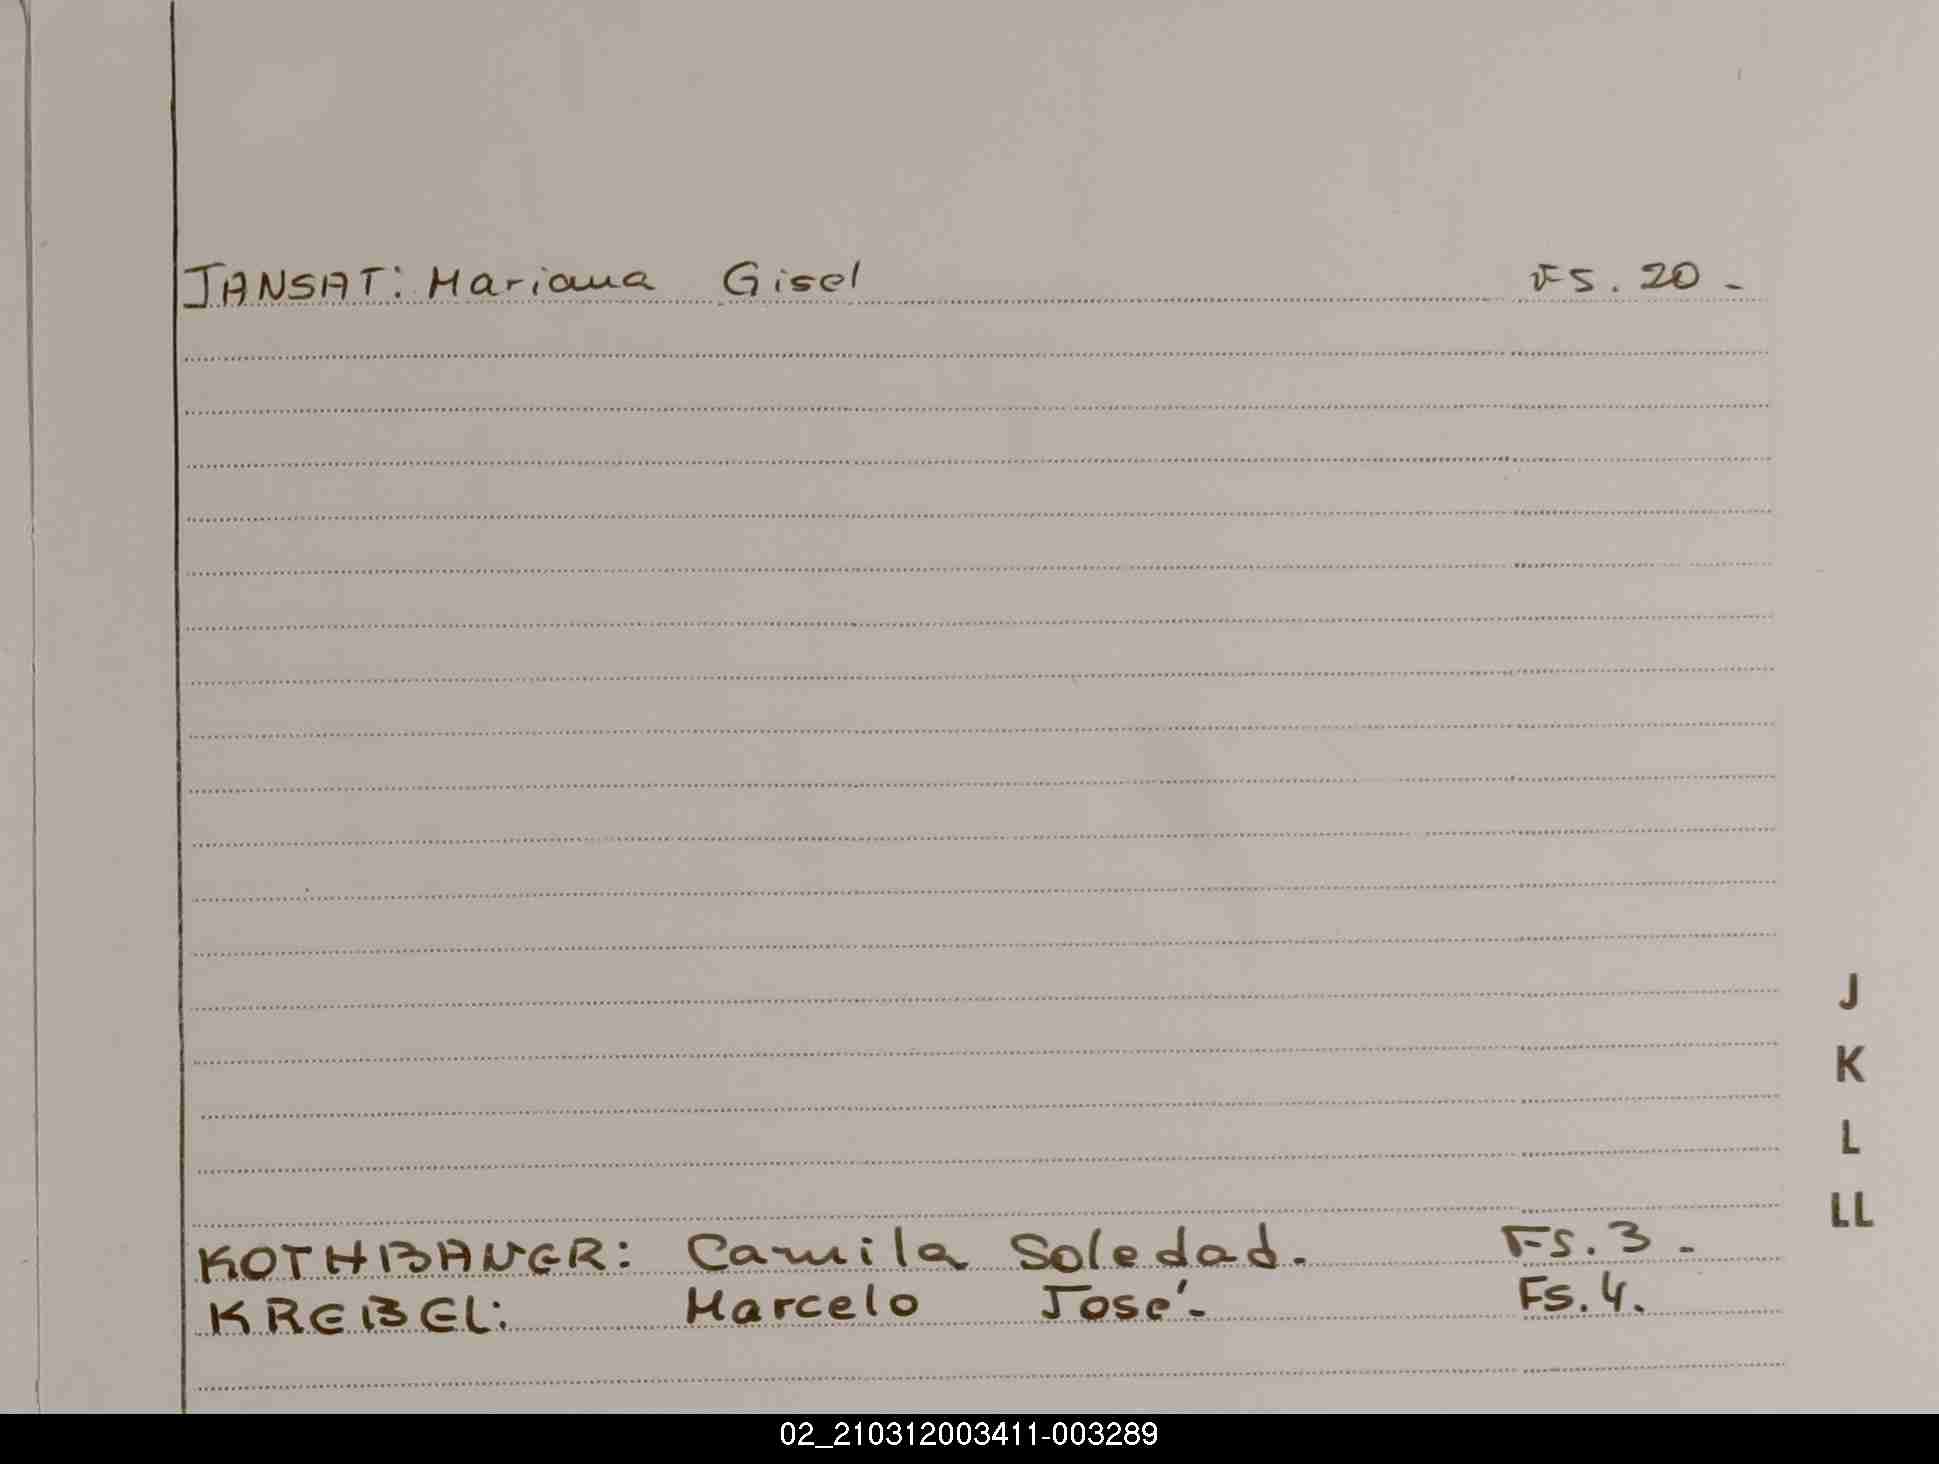 JANSAT: Mariana Gisel FS. 20 -
J
K
L
LL
KOTHBAUER: Camila Soledad. Fs. 3 -
KREIBEL: Marcelo José.- Fs. 4.
02_210312003411-003289